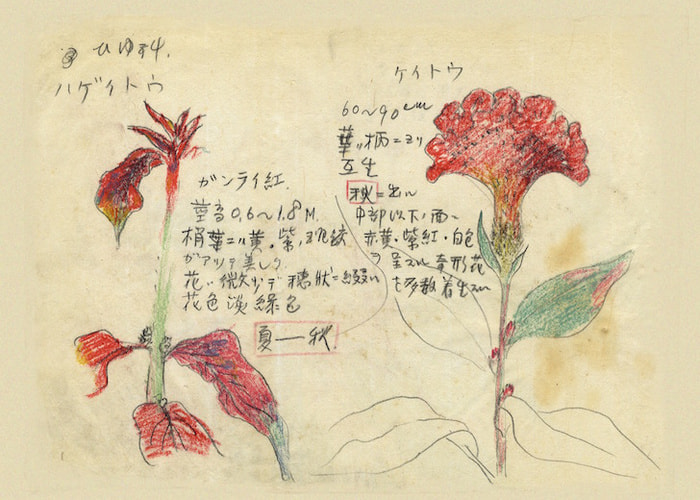 ひゆ科.
ハゲイトウ
ガンライ紅.
莖高0.6〜1.8M.
梢葉ニハ黄.紫.斑紋
ガアリテ美シク
花ハ微少デ穂状ニ綴ル
花色淡緑色
夏―秋.
ケイトウ
60〜90cm
葉ハ柄ニヨリ
互生
秋ニ出ル
中部以下ノ面ニ
赤黄.紫紅.白色
呈スル奇形花
を多数着生スル